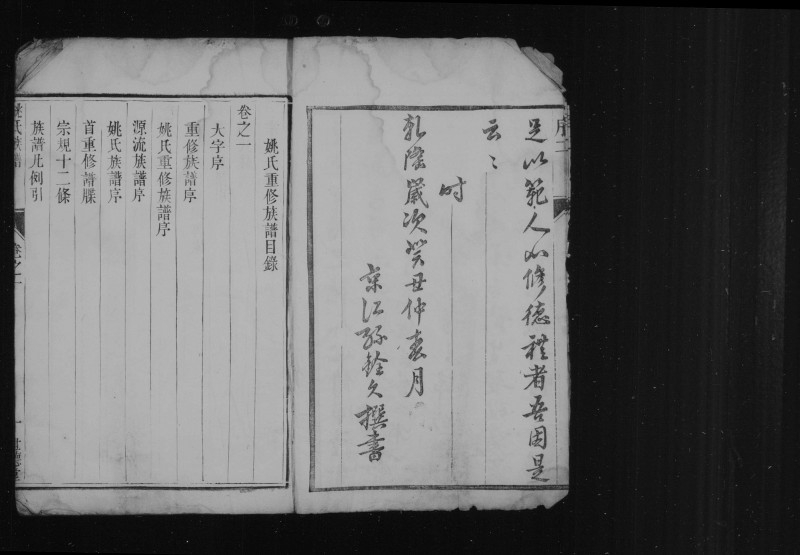 序二
足以範人必修德禮者吾因是
云云
時
乾隆歲次癸丑仲春月
孫銓久撰書
姚氏重修族譜目錄
卷之一
大字序
重修族譜序
姚氏重修族譜序
源流族譜序
姚氏族譜序
首重修譜牒
宗規十二條
族譜凡例引
姚氏族譜
卷之一
一
世德堂